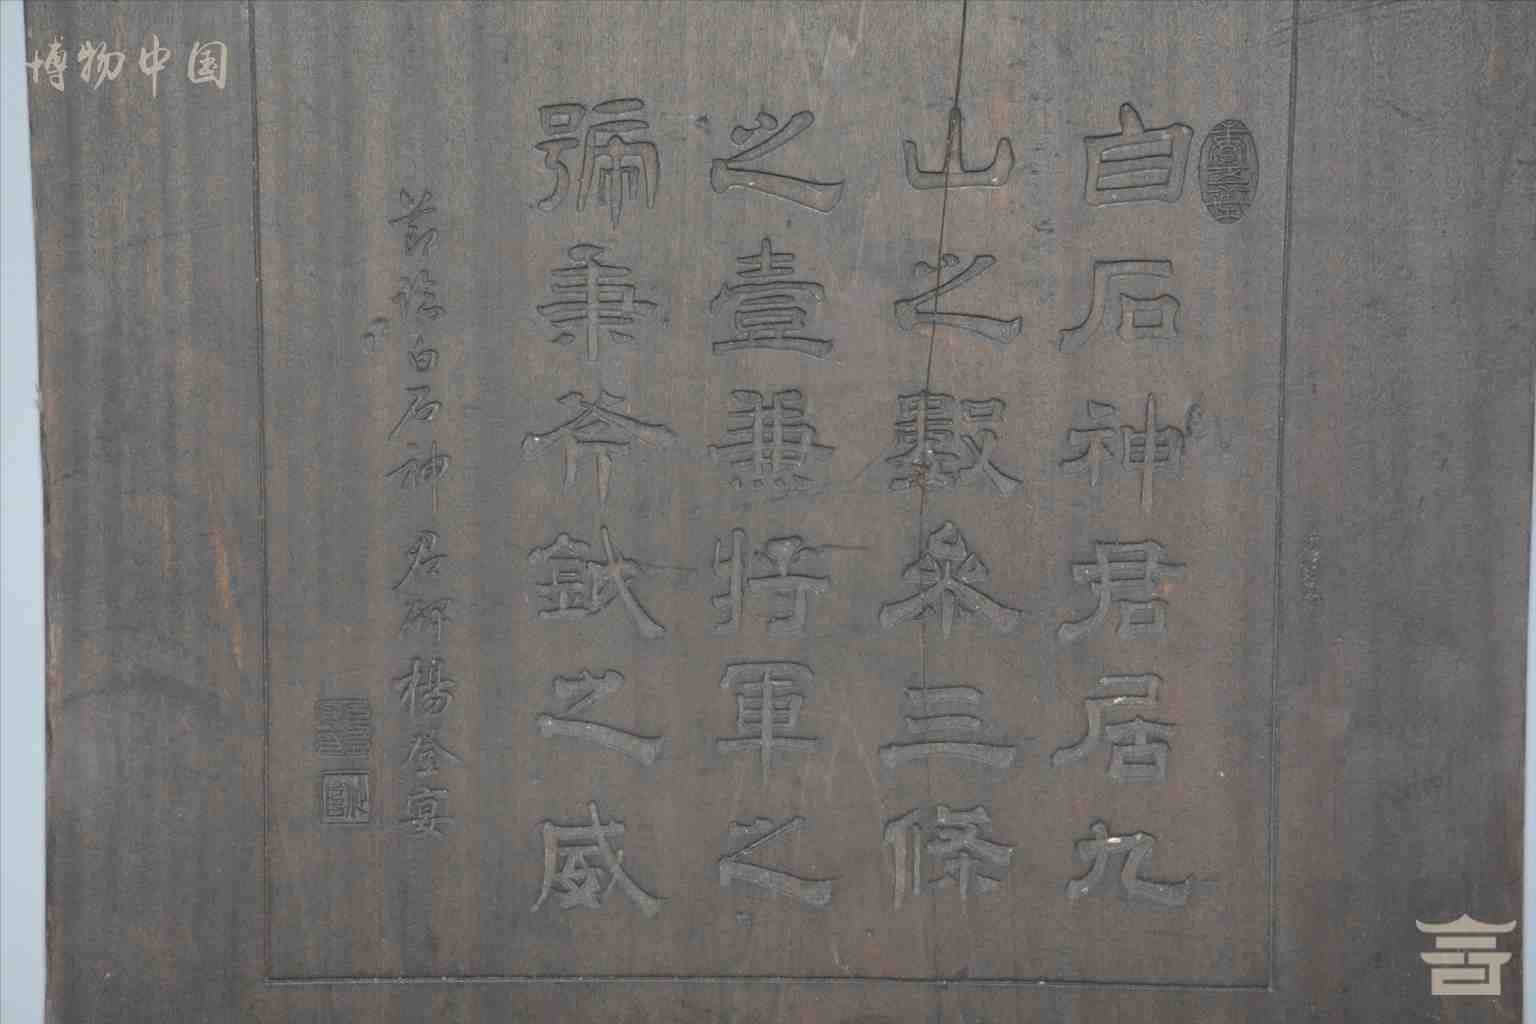 博物中国
白石神君居九
山之數參三條
之壹兼將軍之
號秉斧鉞之威
節臨白石神君碑楊登宴